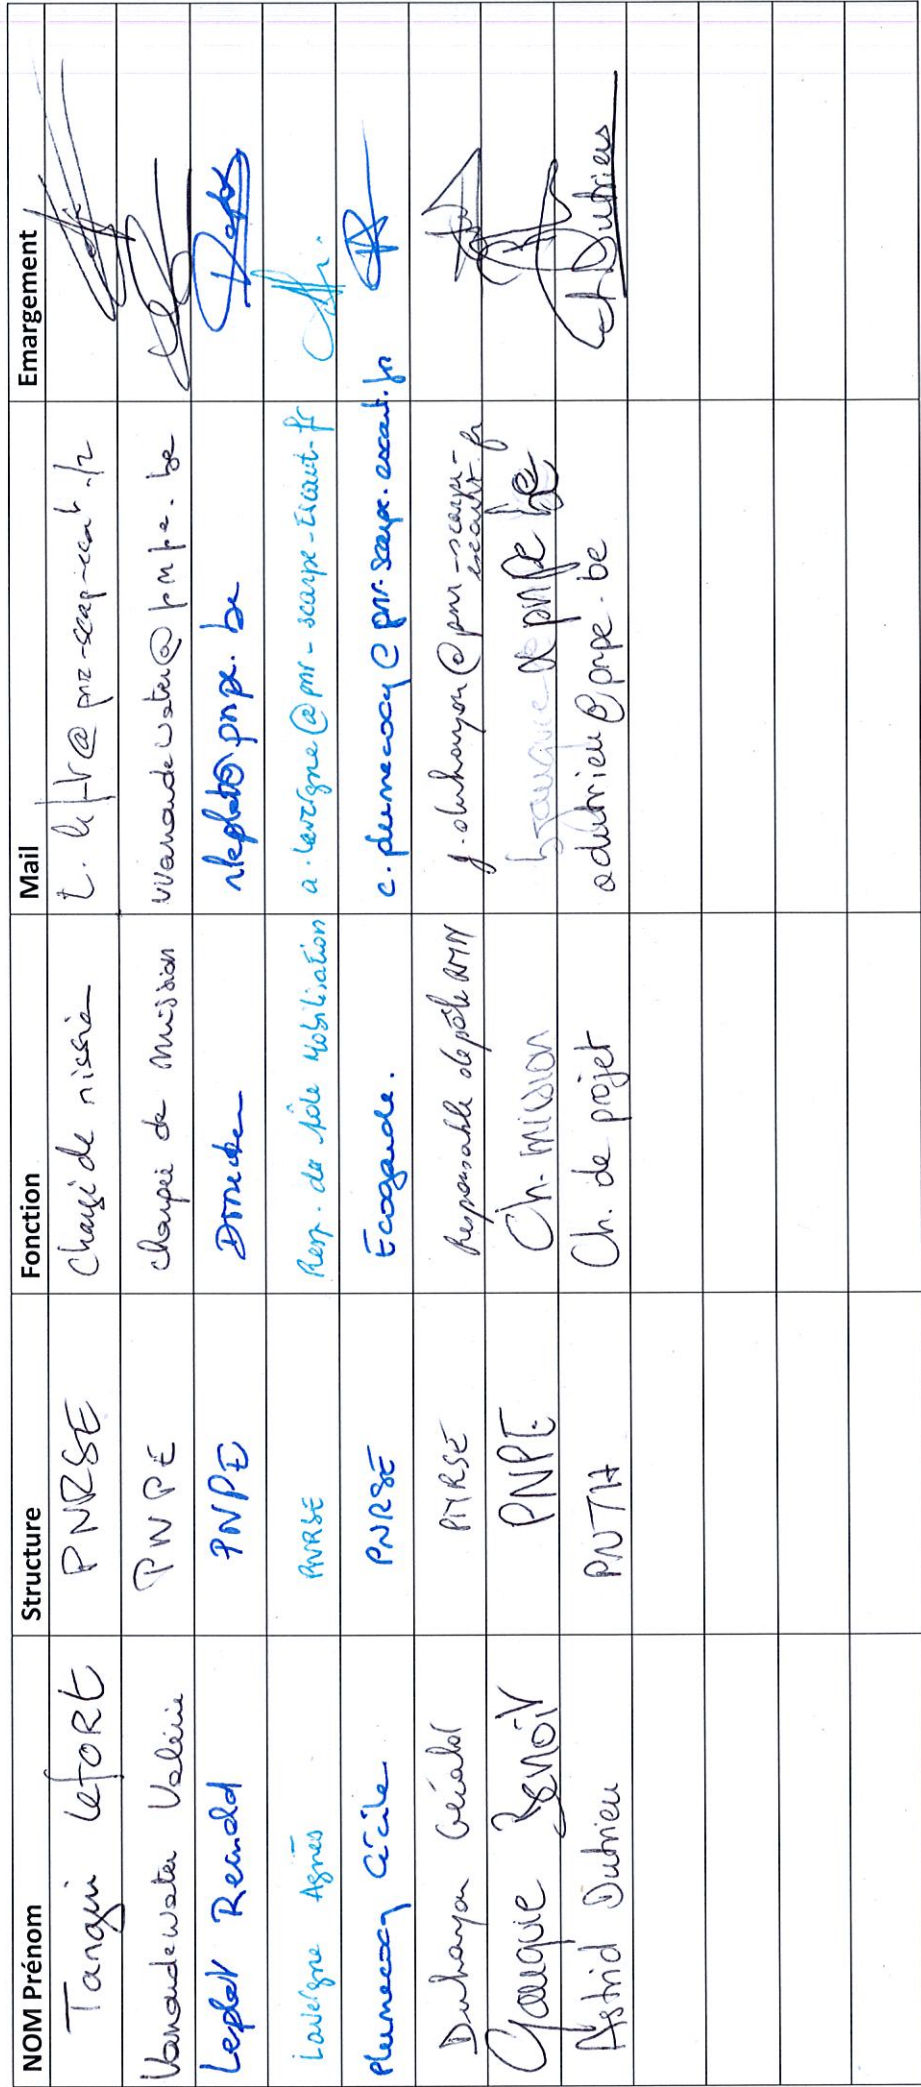 NOM Prénom Structure Fonction Mail Emargement
Tangui LEFORT PNRSE Chargé de mission
Vanaudewater Valérie PNPE chargée de mission vvanaudewater@pnpe.be
Leplat Reinold PNPE Directeur rleplat@pnpe.be
Lavergne Agnès PNRSE Resp. du pôle Mobilisation a.lavergne@pnr-scarpe-escaut.fr
Plumecocq Cécile PNRSE Ecogarde. c.plumecocq@pnr-scarpe-escaut.fr
Duhayon Gérald PNRSE Responsable de pôle g.duhayon@pnr-scarpe-escaut.fr
Gauquie Benoit PNPE Ch. mission bgauquie@pnpe.be
Astrid Dutrieu PNTH Ch. de projet adutrieu@pnpe.be A Dutrieu